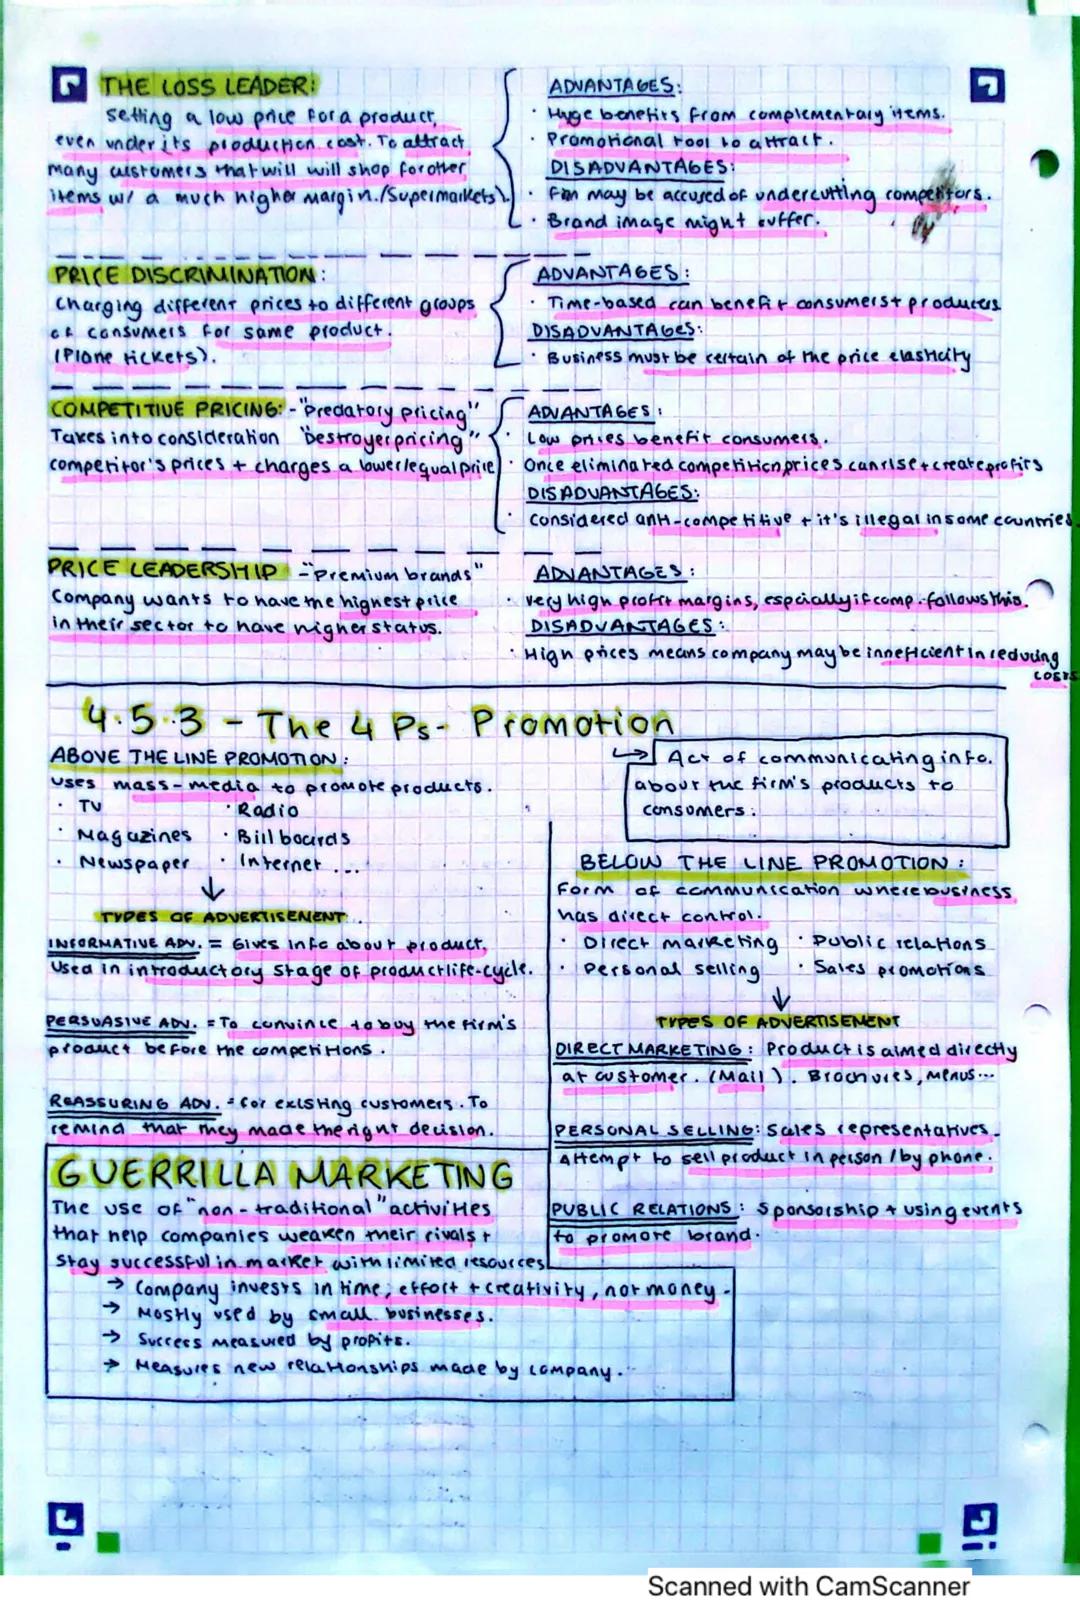 THE LOSS LEADER:
Setting a low price for a product,
even under its production cost. To attract
many customers that will will shop for other
items w/ a much higher margin. (Supermarkets).
ADVANTAGES:
· Huge benefits from complementary items.
· Promotional tool to attract.
DISADVANTAGES:
· Firm may be accused of undercutting competitors.
· Brand image might suffer.
PRICE DISCRIMINATION:
Charging different prices to different groups
of consumers for same product.
(Plane tickets).
ADVANTAGES:
· Time-based can benefit consumers + producers
DISADVANTAGES:
· Business must be certain of the price elasticity
COMPETITIVE PRICING: - "Predatory pricing"
Takes into consideration "Destroyer pricing"
competitor's prices + charges a lower/equal price
ADVANTAGES:
· Low prices benefit consumers.
· Once eliminated competition, prices can rise + create profits
DISADVANTAGES:
· Considered anti-competitive + it's illegal in some countries
PRICE LEADERSHIP - "Premium brands"
Company wants to have the highest price
in their sector to have higher status.
ADVANTAGES:
· Very high profit margins, espcially if comp. follows this.
DISADVANTAGES:
· High prices means company may be inneficient in reducing
costs
4.5.3 - The 4 Ps - Promotion
↳ Act of communicating info.
about the firm's products to
consumers.
ABOVE THE LINE PROMOTION:
Uses mass-media to promote products.
· TV · Radio
· Magazines · Billboards
· Newspaper · Internet ...
↓
TYPES OF ADVERTISEMENT
INFORMATIVE ADV. = Gives info about product.
Used in introductory stage of product life-cycle.
PERSUASIVE ADV. = To convince to buy the firm's
product before the competitions.
REASSURING ADV. = for existing customers. To
remind that they made the right decision.
BELOW THE LINE PROMOTION:
Form of communication where business
has direct control.
· Direct marketing · Public relations
· Personal selling · Sales promotions
↓
TYPES OF ADVERTISEMENT
DIRECT MARKETING: Product is aimed directly
at customer. (Mail). Brochures, Menus...
PERSONAL SELLING: Sales representatives.
Attempt to sell product in person / by phone.
PUBLIC RELATIONS: Sponsorship + using events
to promote brand.
GUERRILLA MARKETING
The use of "non-traditional" activities
that help companies weaken their rivals +
stay successful in market with limited resources
→ Company invests in time, effort + creativity, not money.
→ Mostly used by small businesses.
→ Success measured by profits.
→ Measures new relationships made by company.
Scanned with CamScanner